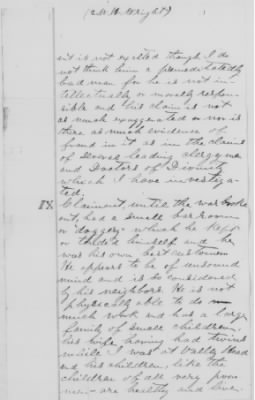 (2. H. Wright)
is not exalted though I do
not think him a premeditatedly
bad man for he is not in-
tellectually or morally respon-
sible and his claim is not
as much exaggerated or nor is
there as much evidence of
fraud in it as in the claims
of leading clergymen
and Doctors of Divinity
which I have investiga-
ted.
Claimant, until the war broke
out, had a small bar room
or "doggery" which he kept
or tended himself and he
was his own best customer.
He appears to be of unsound
mind and is so considered
by his neighbors. He is not
physically able to do
much work and has a large
family of small children,
his wife having had twins
while I was at Valley Head
and his children, like the
children of all very poor
men are healthy and